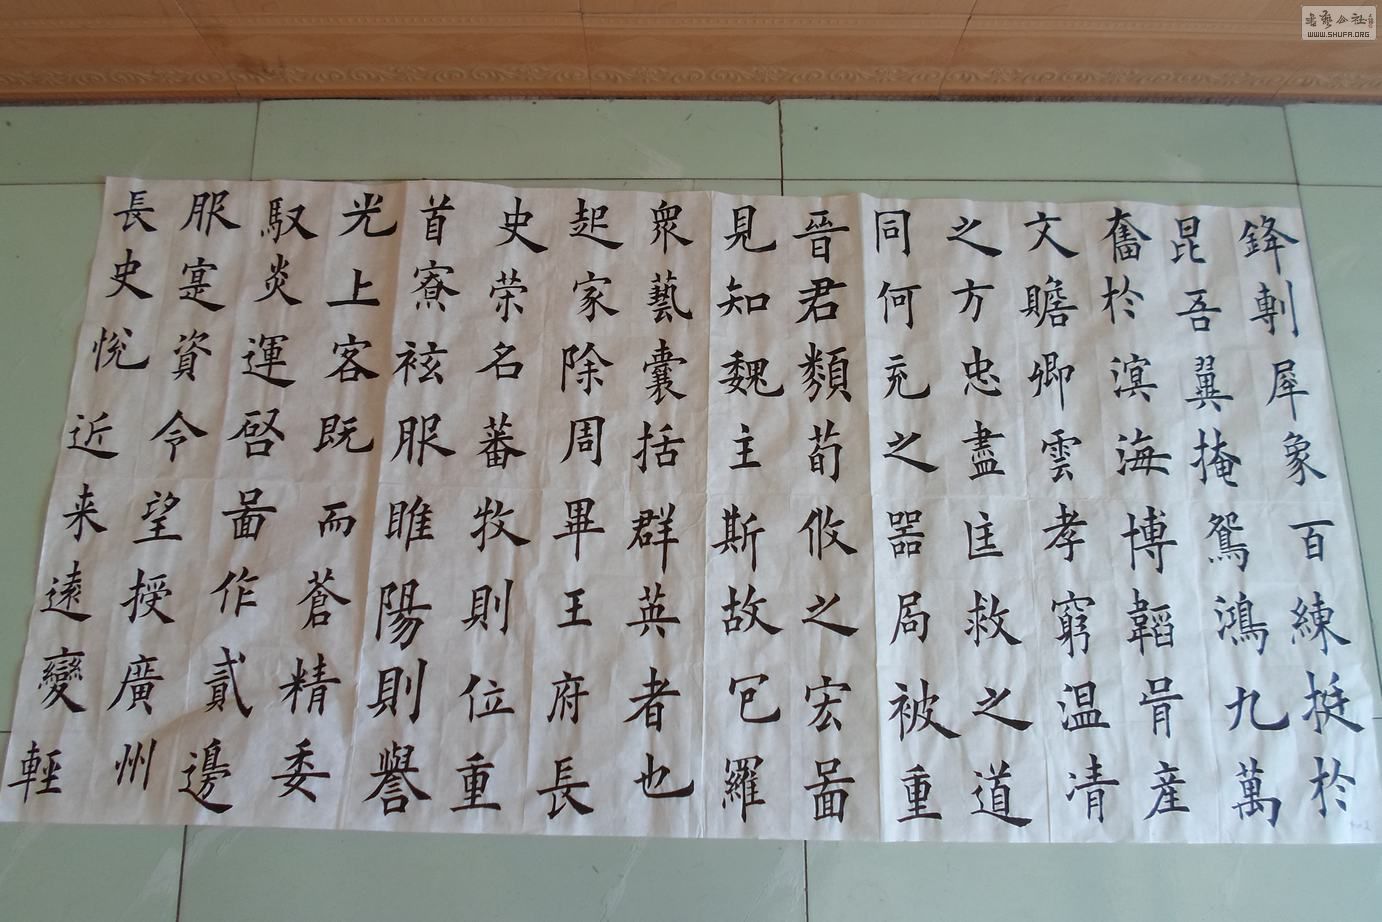 鋒剸犀象百練挺於
昆吾翼掩鴛鴻九萬
奮於溟海博韜胄産
文贍卿雲孝窮温凊
之方忠盡匡救之道
同何充之器局被重
晉君類荀攸之宏啚
見知魏主斯故包羅
衆藝囊括群英者也
起家除周畢王府長
史荣名蕃牧則位重
首寮袨服睢陽則譽
光上客既而蒼精委
馭炎運啓啚作貳邊
服寔資令望授廣州
長史悦近来遠變輕
書藝公社
WWW.SHUFA.ORG